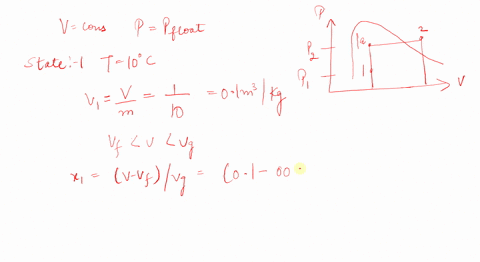 V = cons P = Pfloat
State:-1 T=10°C
V1 = V/m = 1/10 = 0.1m³/kg
Vf < V < Vg
x1 = (V-Vf)/Vg = (0.1 - 00
P
P2
P1
1a
2
1
V